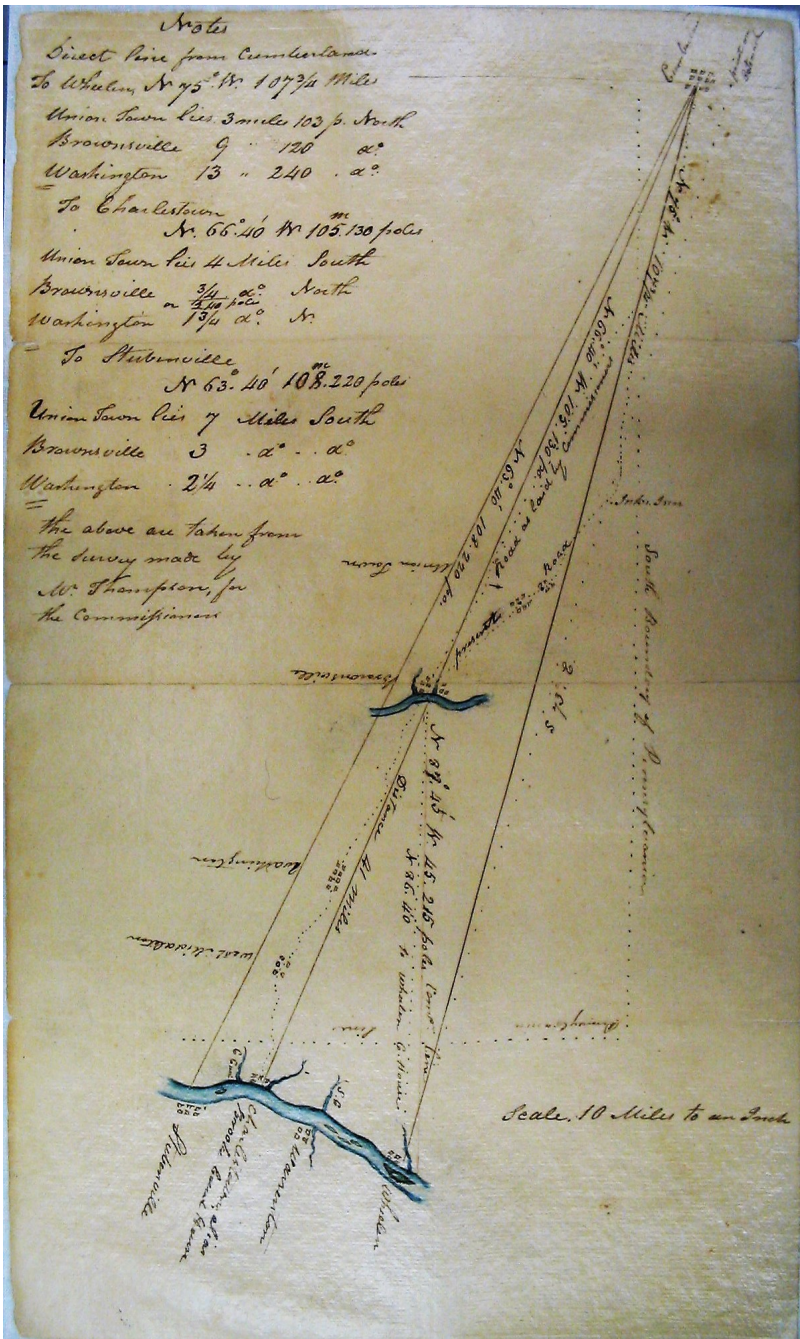 Notes
Direct line from Cumberland
To Wheelin, N 75° W. 107 3/4 Miles
Union Town lies 3 miles 103 p. North
Brownsville 9 " 120 do.
Washington 13 " 240 . do.
To Charlestown
N. 66° 40' W 105 m 130 poles
Union Town lies 4 Miles South
Brownsville 3/4 do. North
or 240 poles
Washington 1 3/4 do. N.
To Stubenville
N 63° 40' 108 m. 220 poles
Union Town lies 7 Miles South
Brownsville 3 . do . do
Washington 2 1/4 .. do .. do.
the above are taken from
the survey made by
Mr. Thompson, for
the Commissioners
Cumberland
N 75° W. 107 3/4 Miles
N 66° 40' W. 105. 130 po.
Road as laid by Commissioners
N 63° 40' 108. 220 po.
Union Town
Road
South Boundary of Pennsylvania
Brownsville
N 87° 45' W 45. 215 poles Comd. line
N 86. 40 to Wheelen
Distance 41 Miles
Washington
West Middleton
line
Pennsylvania
Scale. 10 Miles to an Inch
S. C
Stubenville
Charlestown, alias
Warrenton
Wheelen